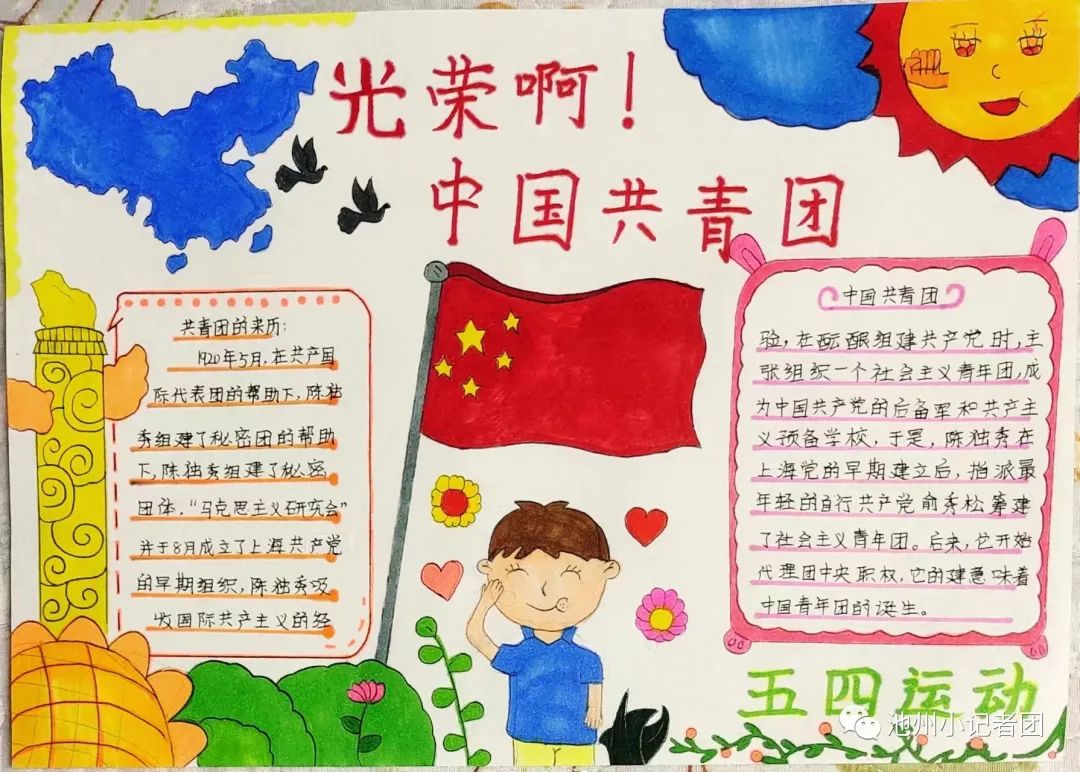 光荣啊！
中国共青团
共青团的来历：
1920年5月，在共产国
际代表团的帮助下，陈独
秀组建了秘密团的帮助
下，陈独秀组建了秘密
团体，“马克思主义研究会”
并于8月成立了上海共产党
的早期组织，陈独秀吸
收国际共产主义的经
中国共青团
验，在酝酿组建共产党时，主
张组织一个社会主义青年团，成
为中国共产党的后备军和共产主
义预备学校，于是，陈独秀在
上海党的早期建立后，指派最
年轻的自行共产党俞秀松筹建
了社会主义青年团。后来，它开始
代理团中央职权，它的建意味着
中国青年团的诞生。
五四运动
池州小记者团